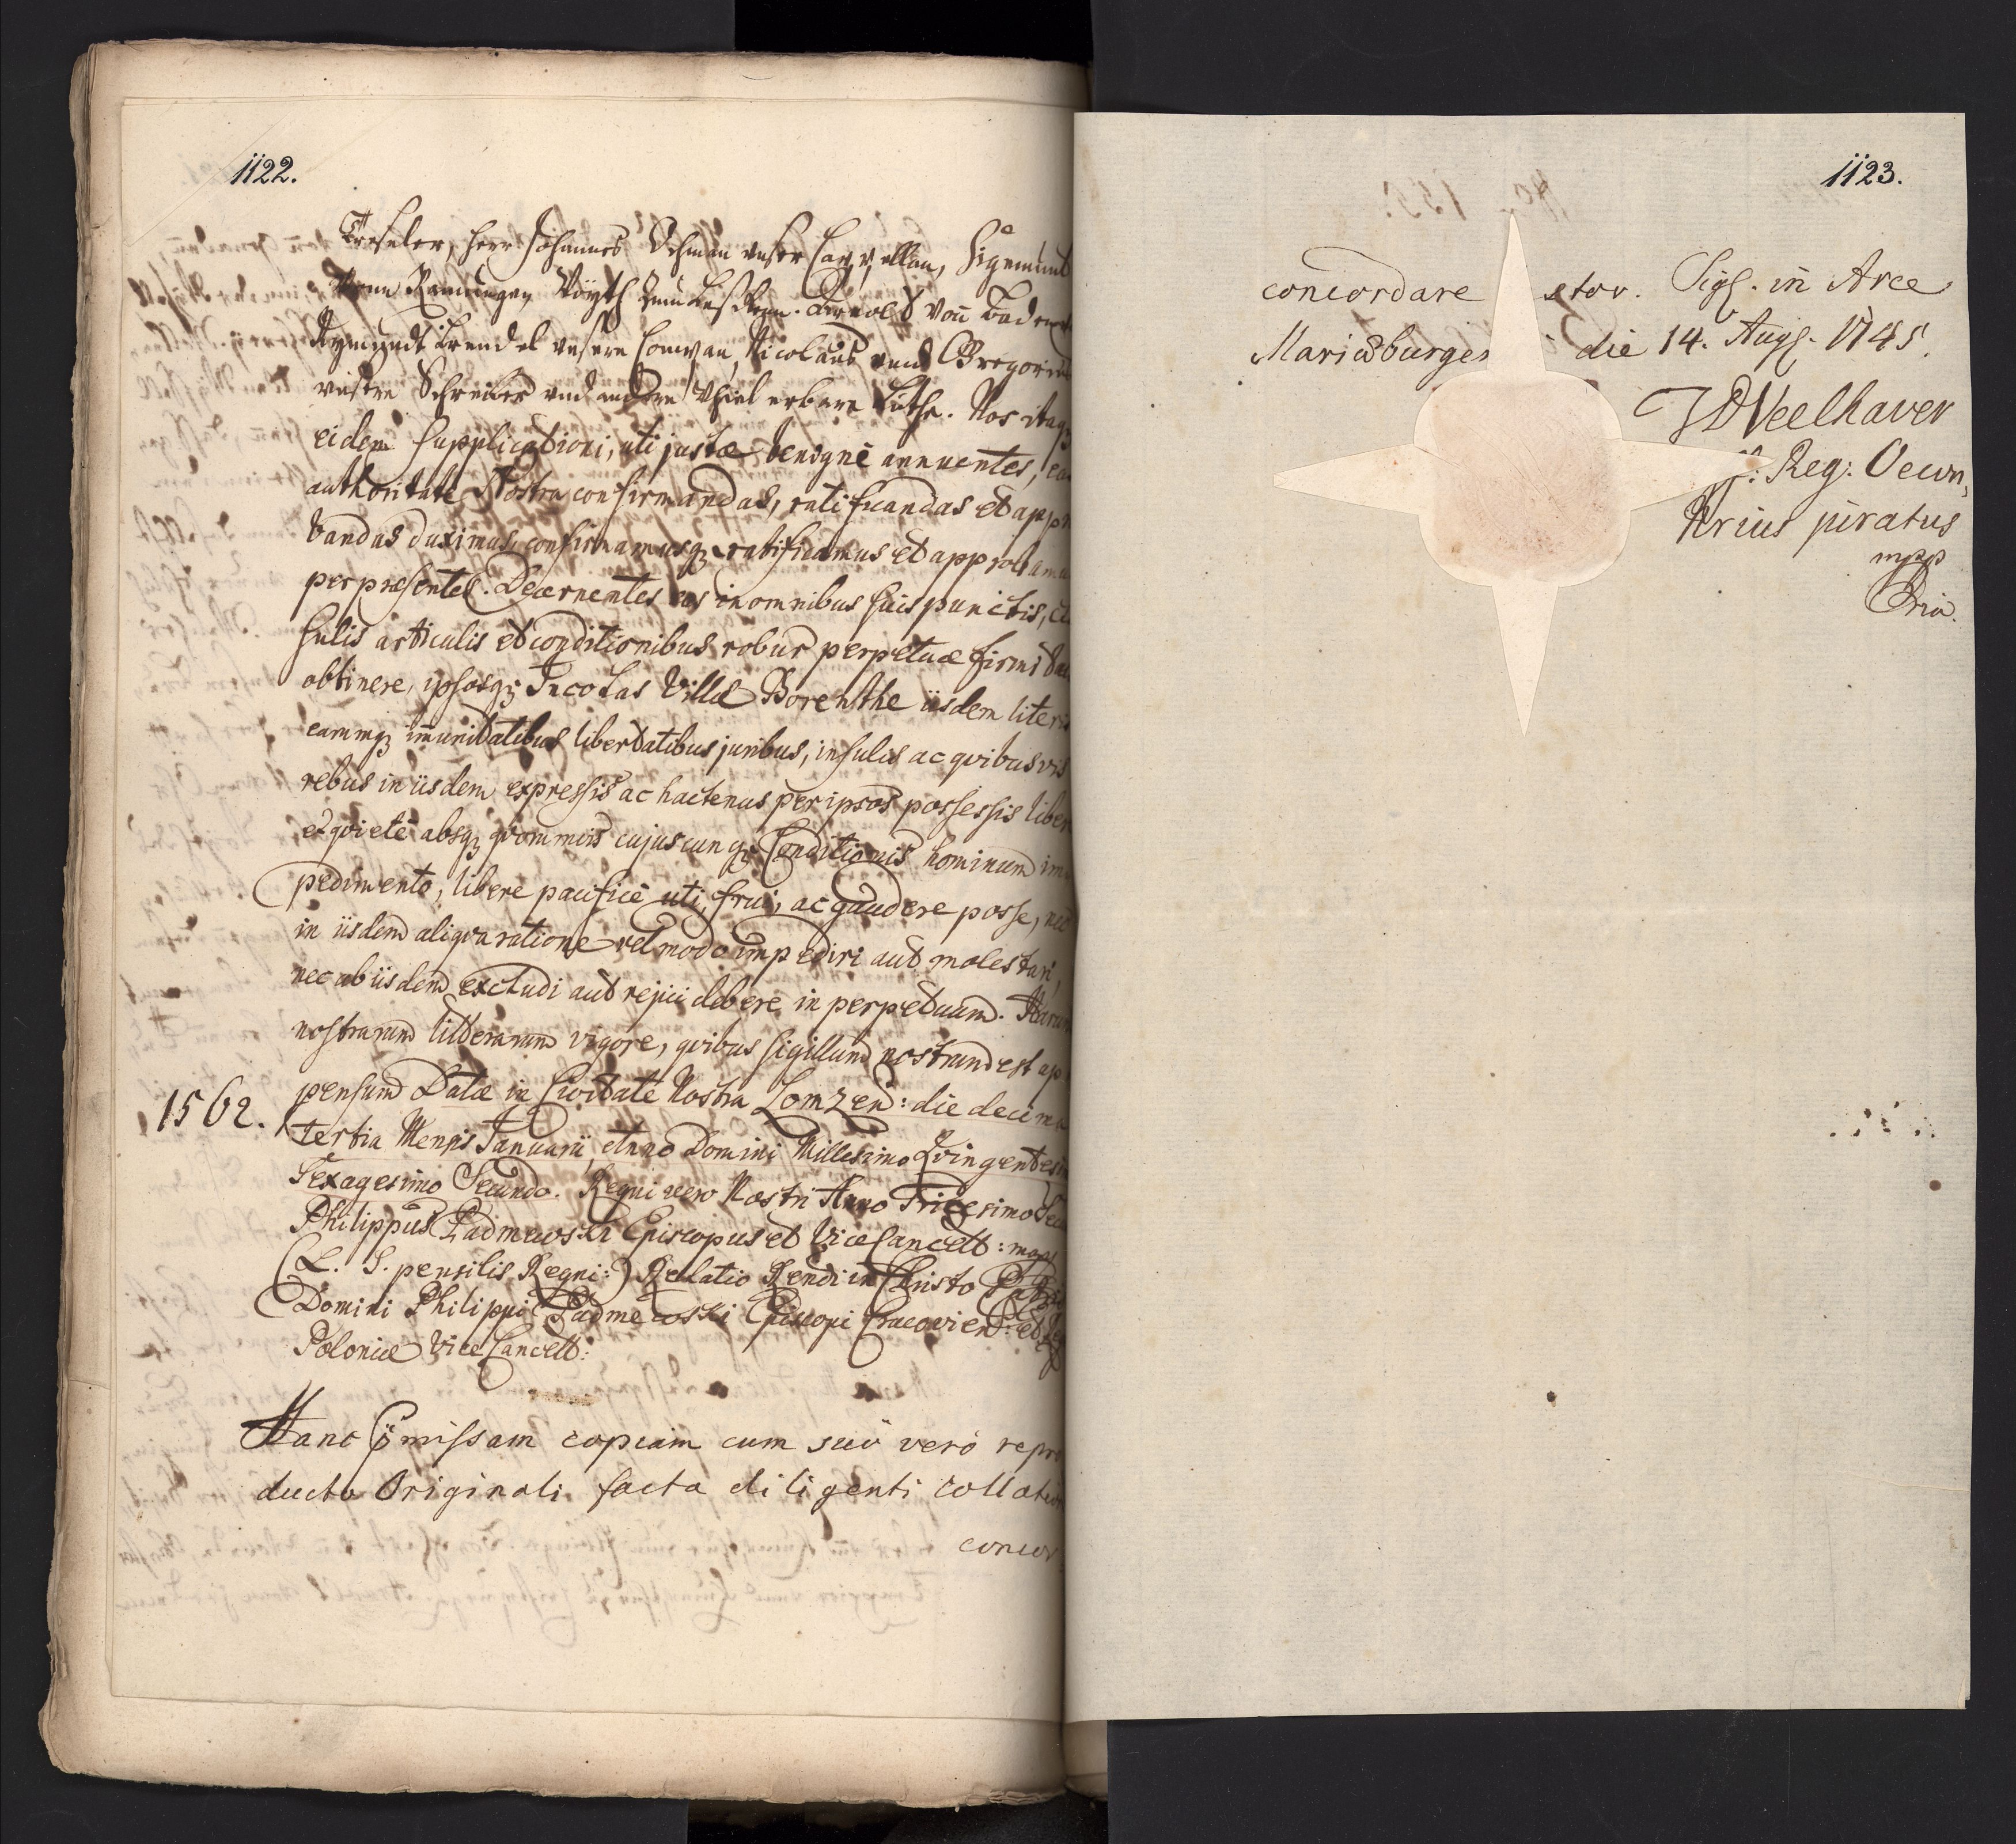 1122.
Treseler, herr Johannes Schman unser Cappellan, Sigemund
vom Ramungen Voÿth zum Leske. Arnold von Baden
Reymundt Trendel unsern Compan, Nicolaus und Gregorius
unsere Schreiber und andere Uhiel erbare Lüthe. Nos itaqz
eidem Supplicationi, uti justæ benignè annuentes, eas
authoritate Nostra confirmandas, ratificandas et appro
bandas duximus, confirmamusqz ratificamus et approbamus
per præsentes. Decernentes eas in omnibus suis punctis, clau
sulis articulis et conditionibus robur perpetuæ firmitatis
obtinere, ipsosqz Incolas Villæ Borenthe iisdem literis
earumqz imunitatibus libertatibus juribus, insulis ac qvibusvis
rebus in iisdem expressis ac hactenus per ipsos possessis libere
et qvietè absqz qvorumvis cujuscunqz Conditionis hominum im
pedimento, libere pacificè uti, frui, ac gaudere posse, nec
in iisdem aliqva ratione vel modo impediri aut molestari,
nec ab iisdem excludi aut rejici debere in perpetuum. Harum
nostrarum litterarum vigore, qvibus sigillum nostrum est ap
pensum Datæ in Civitate Nostra Lomzen: die decima
1562.
tertia Mensis Januarii, Anno Domini Millesimo Qvingentesimo
Sexagesimo Secundo. Regni vero Nostri Anno Tricesimo Secundo
Philippus Padniewski Episcopus et ViceCancell: mpp
(L. S. pensilis Regni:) Relatio Rendi in Christo Patris
Domini Philippi Padniewski Episcopi Cracovien: et Reg
Poloniæ ViceCancell:
Hanc pmissam copiam cum suo vero repro
ducto Originali facta diligenti collatione
concor
1123.
concordare ꝓtor. Sigl. in Arce
Mariæburgen die 14. Augs. 1745.
JDWeelhaver
Reg: Oecon,
Nrius juratus
mpp